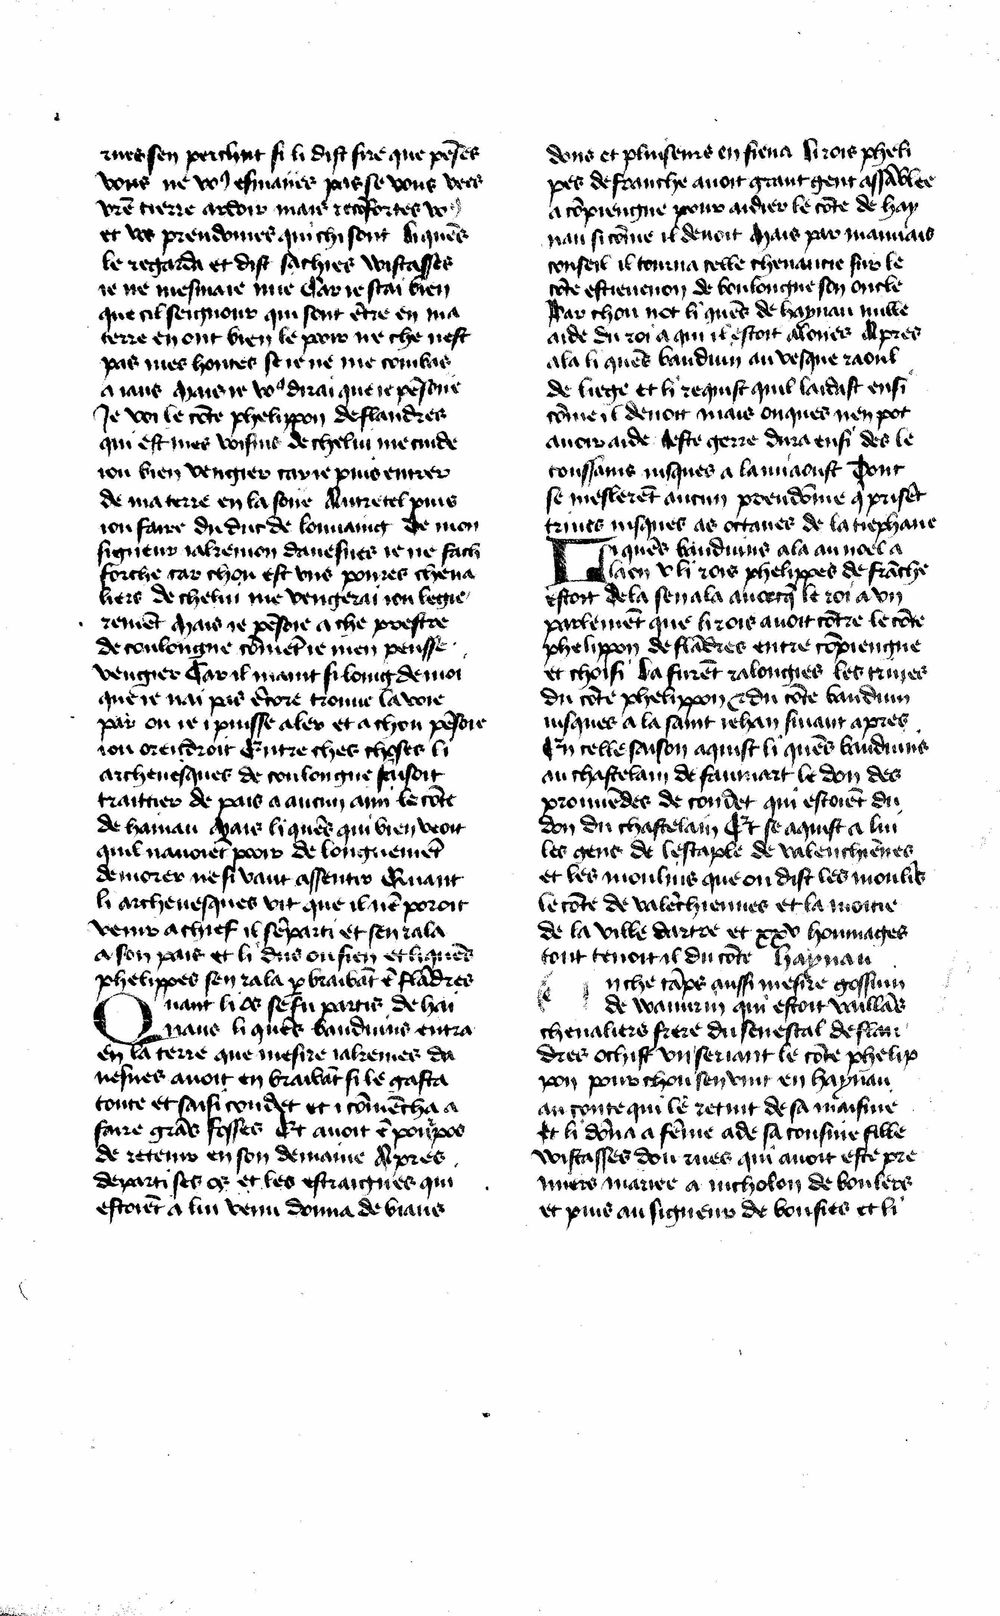 rues sen perchut si li dist sire que pēses
vous ne voꝰ esmaiies pas se vous vees
vrē tierre ardoir mais recōfortes voꝰ
et vos preudomes qui chi sont Li quēs
le regarda et dist sachies wistasses
ie ne mesmaie mie Car ie scai bien
que cil seignour qui sont ētre en ma
terre en ont bien le pooir ne che nest
pas mes hontes se ie ne me combas
a iaus Mais ie voꝰ dirai que ie pēsoie
Je voi le cōte phelippon de flandres
qui est mes voisins de chelui me cuide
iou bien vengier car ie puis entrer
de ma terre en la soie Autretel puis
iou faire du duc de louuaing De mon
signeur iakemon dauesnes ie ne fach
forche car chou est vns poures cheua
liers de chelui me vengerai iou legie
remēt Mais ie pēsoie a che prestre
de coulongne cōmēt ie men peusse
vengier Car il maint si loing de moi
que ie nai pas ēcore trouue la voie
par ou ie i puisse aler et a chou pēsoie
iou orendroit Entre ches choses li
archeuesques de coulongne faisoit
traitier de pais a aucun ami le cōte
de hainau Mais li quēs qui bien veoit
quil nauoiēt pooir de longuemēt
demorer ne si vaut assentir Quant
li archeuesques vit que il nē poroit
venir a chief il sē parti et sen rala
a son pais et li dus ou sien et li quēs
phelippes sen rala p braibāt ē flādres
Quant li os se fu partis de hai
naus li quēs bauduins entra
en la terre que mesire iakemes da
uesnes auoit en braibāt si le gasta
toute et saisi condet et i cōmēcha a
faire grās fosses Et auoit ē pourpos
de retenir en son demaine Apres
departi ses os et les estraignes qui
estoiēt a lui venu donna de biaus
dons et pluiseurs en fiena Li rois pheli
pes de franche auoit grant gent assāblee
a cōpiengne pour aidier le cōte de hay
nau si cōme il deuoit Mais par mauuais
conseil il tourna celle cheuaucie sur le
cōte estieuenon de boulongne son oncle
Par chou not li quēs de haynau nulle
aide du roi a qui il estoit aloues Apres
ala li quēs bauduin au vesque raoul
de liege et li requist quil laidast ensi
cōme il deuoit mais onques nen pot
auoir aide Ceste gerre dura ensi des le
toussains iusques a la miaoust Dont
se meslerēt aucun preudōme q prisēt
triues iusques as octaues de la tiephane
Li quēs bauduins ala au noel a
laen v li rois phelippes de frāche
estoit De la sen ala auoecq le roi a vn
parlemēt que li rois auoit cōtre le cōte
phelippon de flādres entre cōpiengne
et choisi La furēt ralongies les triues
du cōte phelippon & du cōte bauduin
iusques a la saint iehan siuant apres
En celle saison aquist li quēs bauduins
au chastelain de faumart le don des
prouuēdes de condet qui estoiēt du
don du chastelain Et se aquist a lui
les gens de lestaple de valenchiēnes
et les moulins que on dist les moulīs
le cōte de valēchiennes et la moitie
de la ville dartre et xxv hommages
tout tenoit il du cōte haynau
n che tāps aussi mesire gossuin
de waurin qui estoit vaillās
cheualiers frere du senescal de flan
dres ochist vn seriant le cōte phelip
pon pour chou sen vint en haynau
au conte qui le retint de sa maisnie
Et li dōna a fēme ade sa cousine fille
wistasses dou rues qui auoit este pre
miers mariee a nicholon de boulers
et puis au signeur de bousies et li